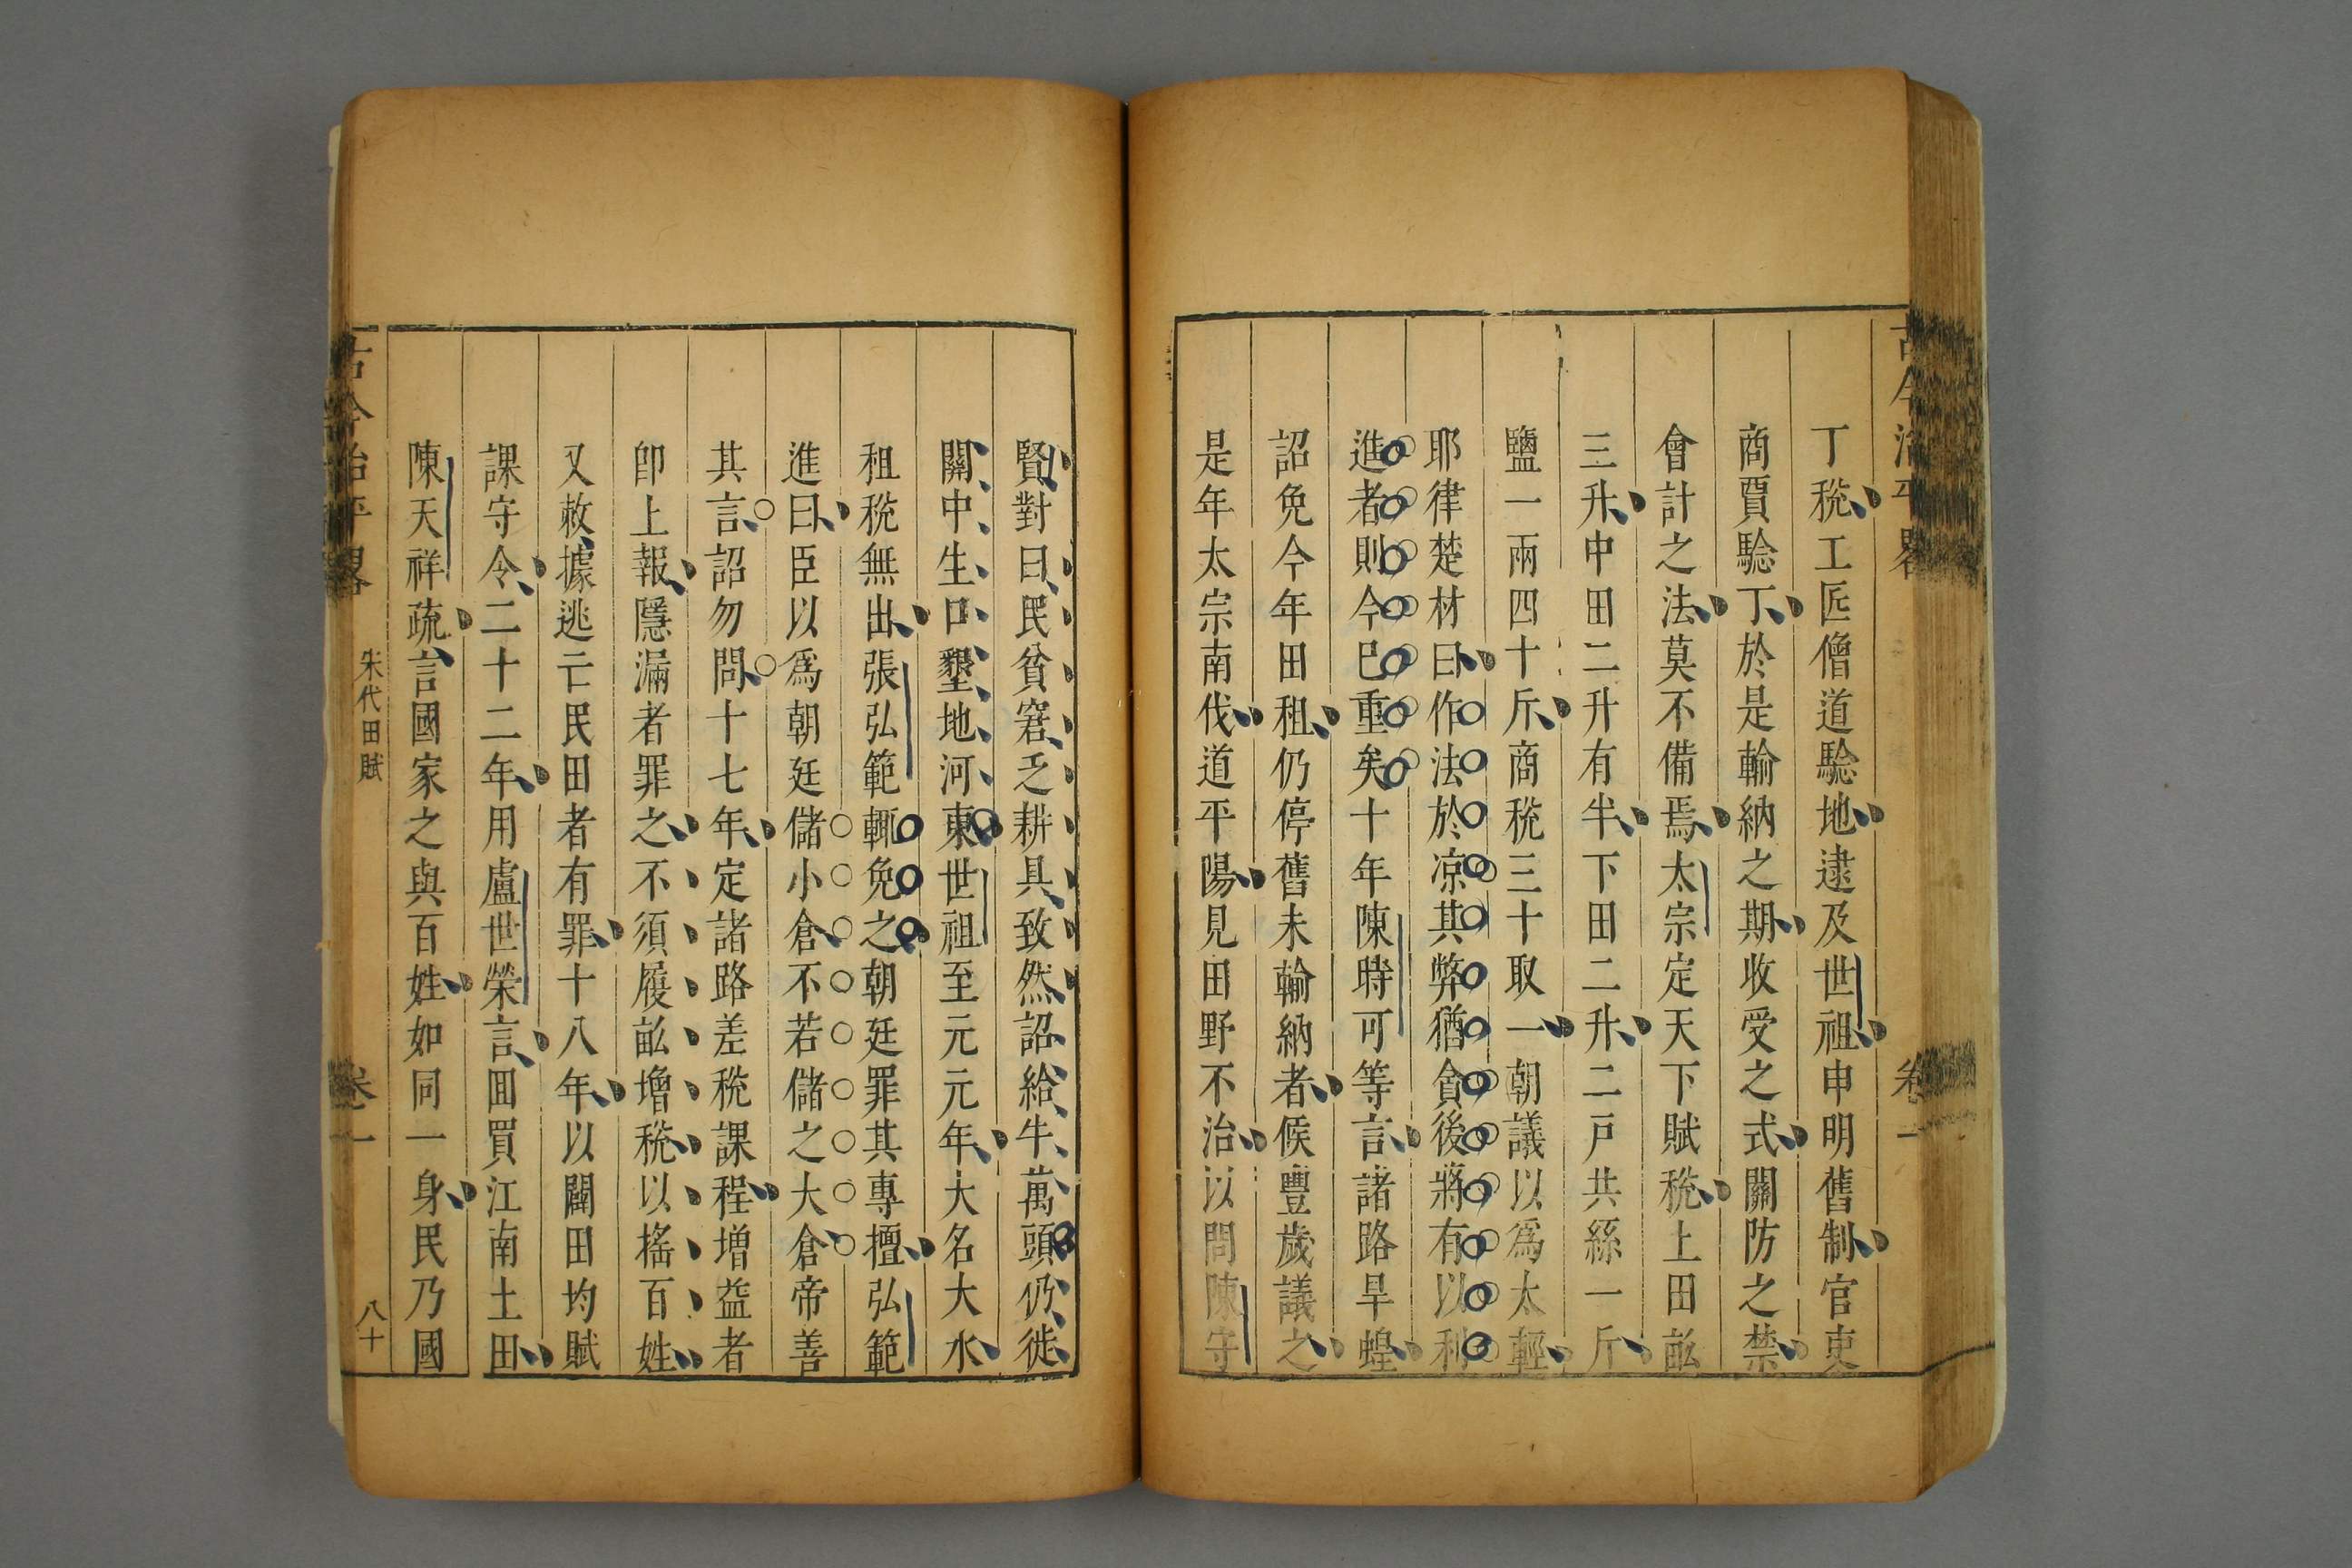 古今治平畧
卷一
丁稅工匠僧道驗地逮及世祖申明舊制官吏
商賈驗丁於是輸納之期收受之式關防之禁
會計之法莫不備焉太宗定天下賦稅上田畝
三升中田二升有半下田二升二戶共絲一斤
鹽一兩四十斤商稅三十取一朝議以爲太輕
耶律楚材曰作法於凉其弊猶貪後將有以利
進者則今已重矣十年陳時可等言諸路旱蝗
詔免今年田租仍停舊未輸納者俟豐歲議之
是年太宗南伐道平陽見田野不治以問陳守
賢對曰民貧窘乏耕具致然詔給牛萬頭仍徙
關中生口墾地河東世祖至元元年大名大水
租稅無出張弘範輒免之朝廷罪其專擅弘範
進曰臣以爲朝廷儲小倉不若儲之大倉帝善
其言詔勿問十七年定諸路差稅課程增益者
卽上報隱漏者罪之不須履畝增稅以搖百姓
又敕據逃亡民田者有罪十八年以闢田均賦
課守令二十二年用盧世榮言回買江南土田
陳天祥疏言國家之與百姓如同一身民乃國
古今治平畧
宋代田賦
卷一
八十